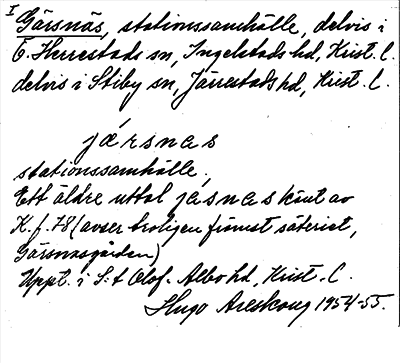 I Gärsnäs, stationssamhälle, delvis i
Ö. Herrestads sn, Ingelstads hd, Krist. l.
delvis i Stiby sn, Järrestads hd, Krist. l.
jársnas
stationssamhälle.
Ett äldre uttal jásnas känt av
K. f. 78 (avser troligen främst säteriet,
Gärsnäsgården)
Uppt. i S:t Olof. Albo hd, Krist. l.
Hugo Areskoug 1954-55.